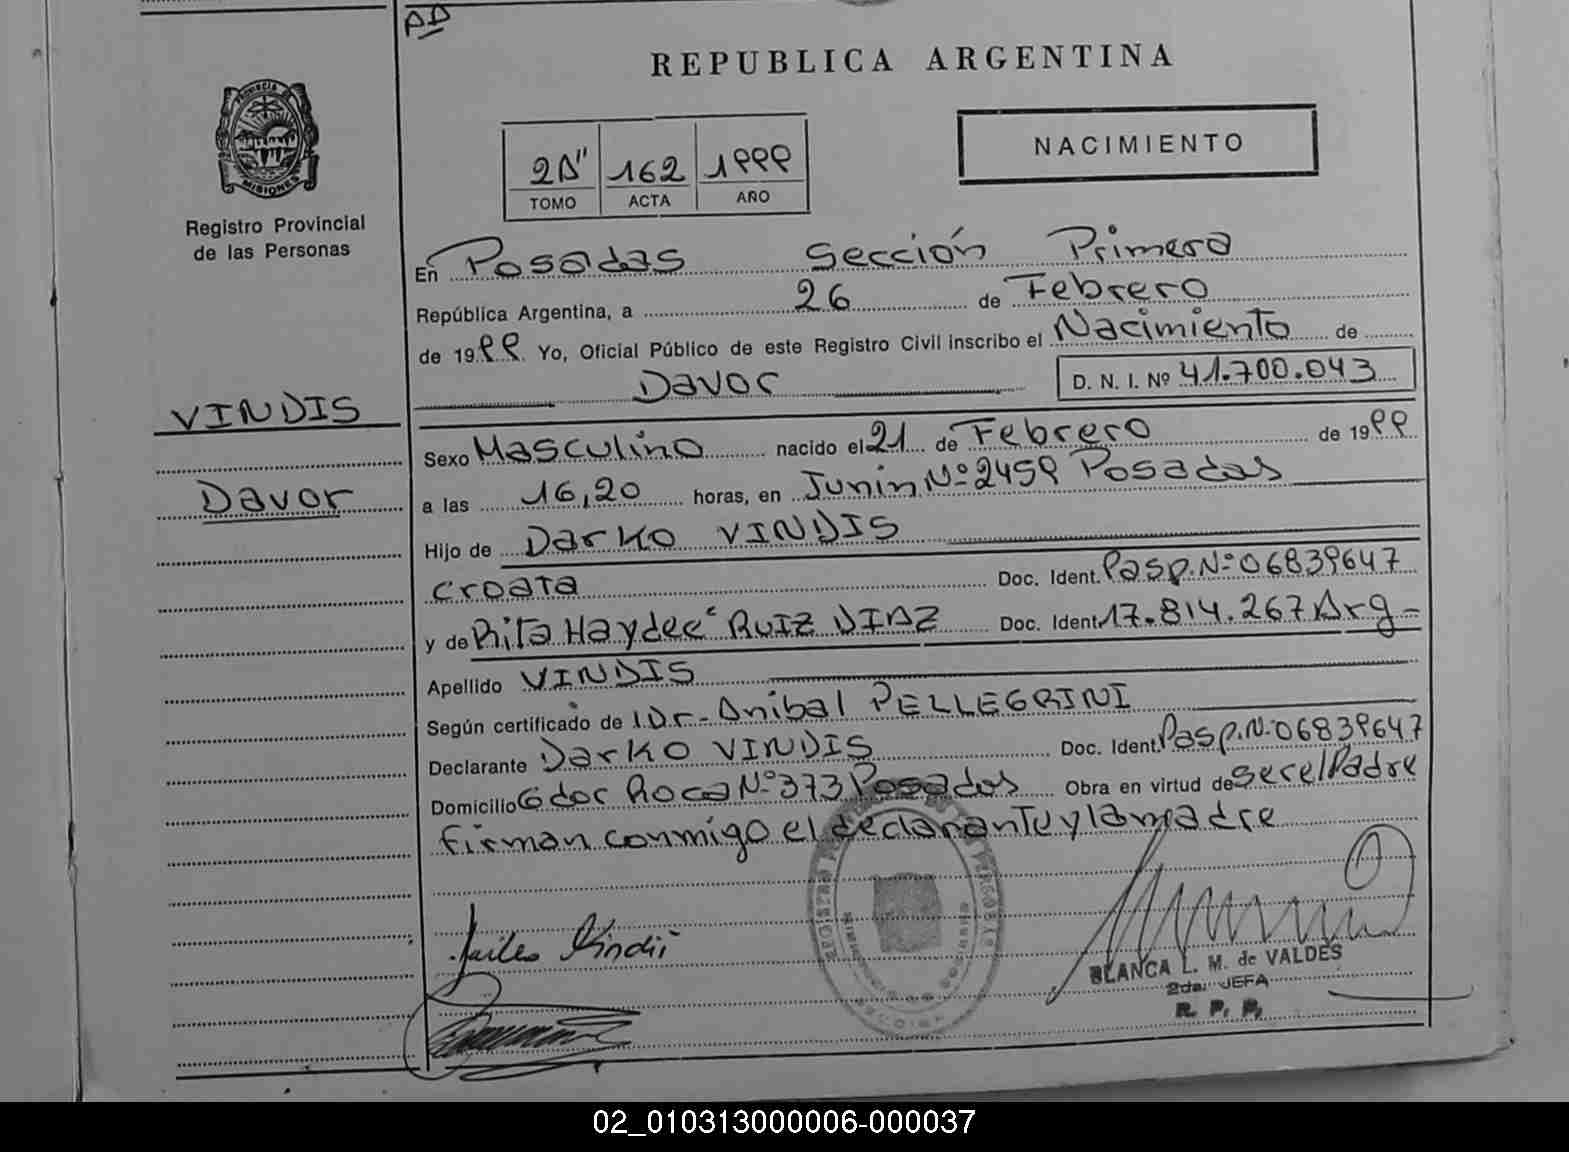 AD
REPUBLICA ARGENTINA
NACIMIENTO
2A" 162 1999
TOMO ACTA AÑO
PROVINCIA DE MISIONES
Registro Provincial
de las Personas
En Posadas Sección Primera
República Argentina, a 26 de Febrero
de 1999 Yo, Oficial Público de este Registro Civil inscribo el Nacimiento de
Davor D. N. I. Nº 41.700.043
VINDIS
Davor
Sexo Masculino nacido el 21 de Febrero de 1999
a las 16,20 horas, en Junin Nº 2459 Posadas
Hijo de Darko VINDIS
Croata Doc. Ident. Pasp. Nº 06839647
y de Rita Haydeé RUIZ DIAZ Doc. Ident. 17.814.267 Arg-
Apellido VINDIS
Según certificado de Dr- Anibal PELLEGRINI
Declarante Darko VINDIS Doc. Ident. Pasp. Nº 06839647
Domicilio Gdor Roca Nº 373 Posadas Obra en virtud de ser el Padre
Firman conmigo el declarante y la madre
BLANCA L. M. de VALDES
2da. JEFA
R. P. P.
02_010313000006-000037